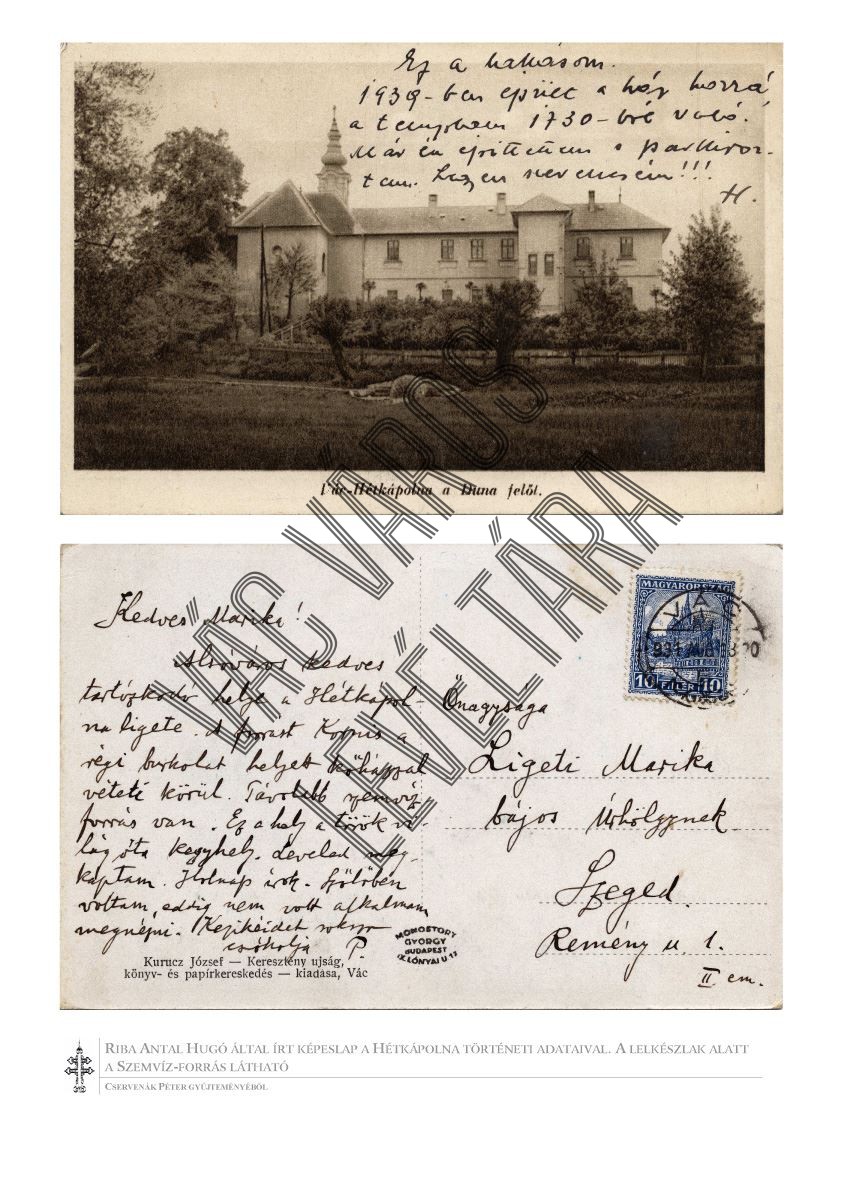 Ez a lakásom.
1930-ban épült a ház hozzá
a templom 1730-ból való.
Már én építettem a
Legyen szerencsém!!!
H.
Vác-Hétkápolna a Duna felől.
Kedves Marika!
Alsóváros kedves
tartózkodó helye a Hétkápol-
na ligete. A forrást Kornis a
régi burkolat helyett kőházzal
véteti körül. Távolabb szemvíz
forrás van. Ez a hely a török vi-
lág óta kegyhely. Leveled meg-
kaptam. Holnap írok. Szőlőben
voltam, eddig nem volt alkalmam
megnézni. Kezikéidet sokszor
csókolja P.
Kurucz József — Keresztény ujság,
könyv- és papírkereskedés — kiadása, Vác
MAGYARORSZÁG
10 FILLÉR 10
VÁC
931 AUG 13
Őnagysága
Ligeti Marika
bájos Úrhölgynek
Szeged.
Remény u. 1.
II em.
MONOSTORY
GYÖRGY
BUDAPEST
IX. LÓNYAI U 17
VÁC VÁROS
LEVÉLTÁRA
RIBA ANTAL HUGÓ ÁLTAL ÍRT KÉPESLAP A HÉTKÁPOLNA TÖRTÉNETI ADATAIVAL. A LELKÉSZLAK ALATT
A SZEMVÍZ-FORRÁS LÁTHATÓ
CSERVENÁK PÉTER GYŰJTEMÉNYÉBŐL